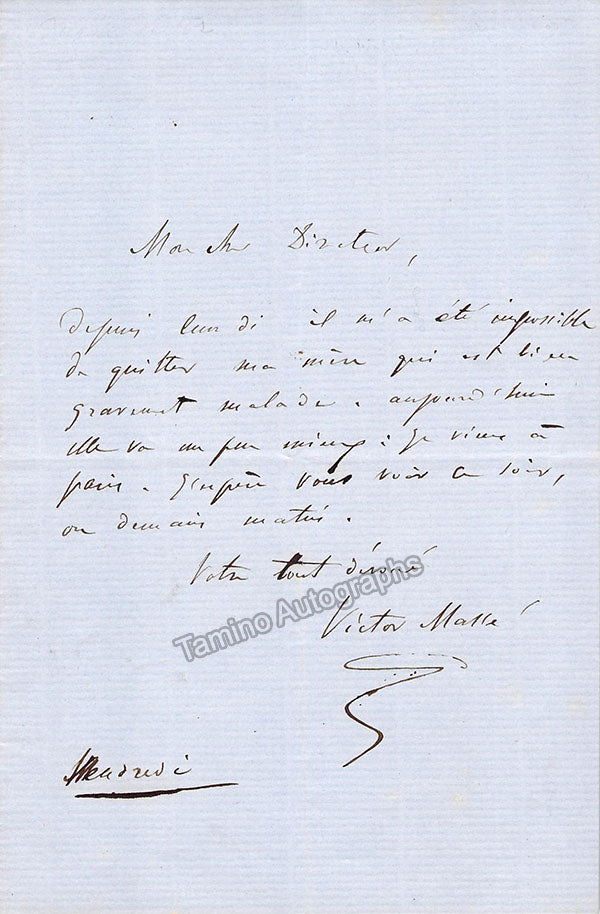 Mon cher Directeur,
depuis lundi il m'a été impossible
de quitter ma mère qui est bien
gravement malade. aujourd'hui
elle va un peu mieux : je viens à
paris. J'espère vous voir ce soir,
ou demain matin.
Votre tout dévoué
Tamino Autographs
Victor Massé
Vendredi